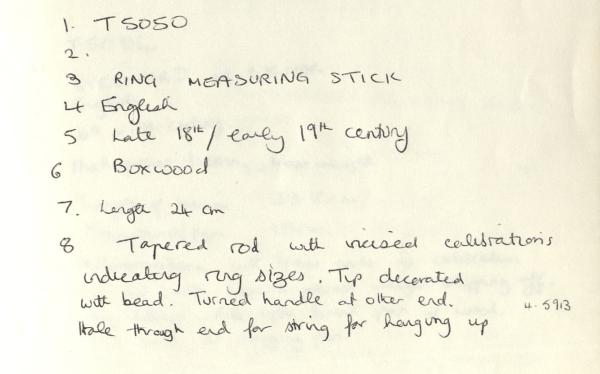 1. T5050
2.
3 RING MEASURING STICK
4 English
5 Late 18th/early 19th century
6 Boxwood
7. Length 24 cm
8 Tapered rod with incised calibrations
indicating ring sizes. Tip decorated
with bead. Turned handle at other end. 4.5913
Hole through end for string for hanging up